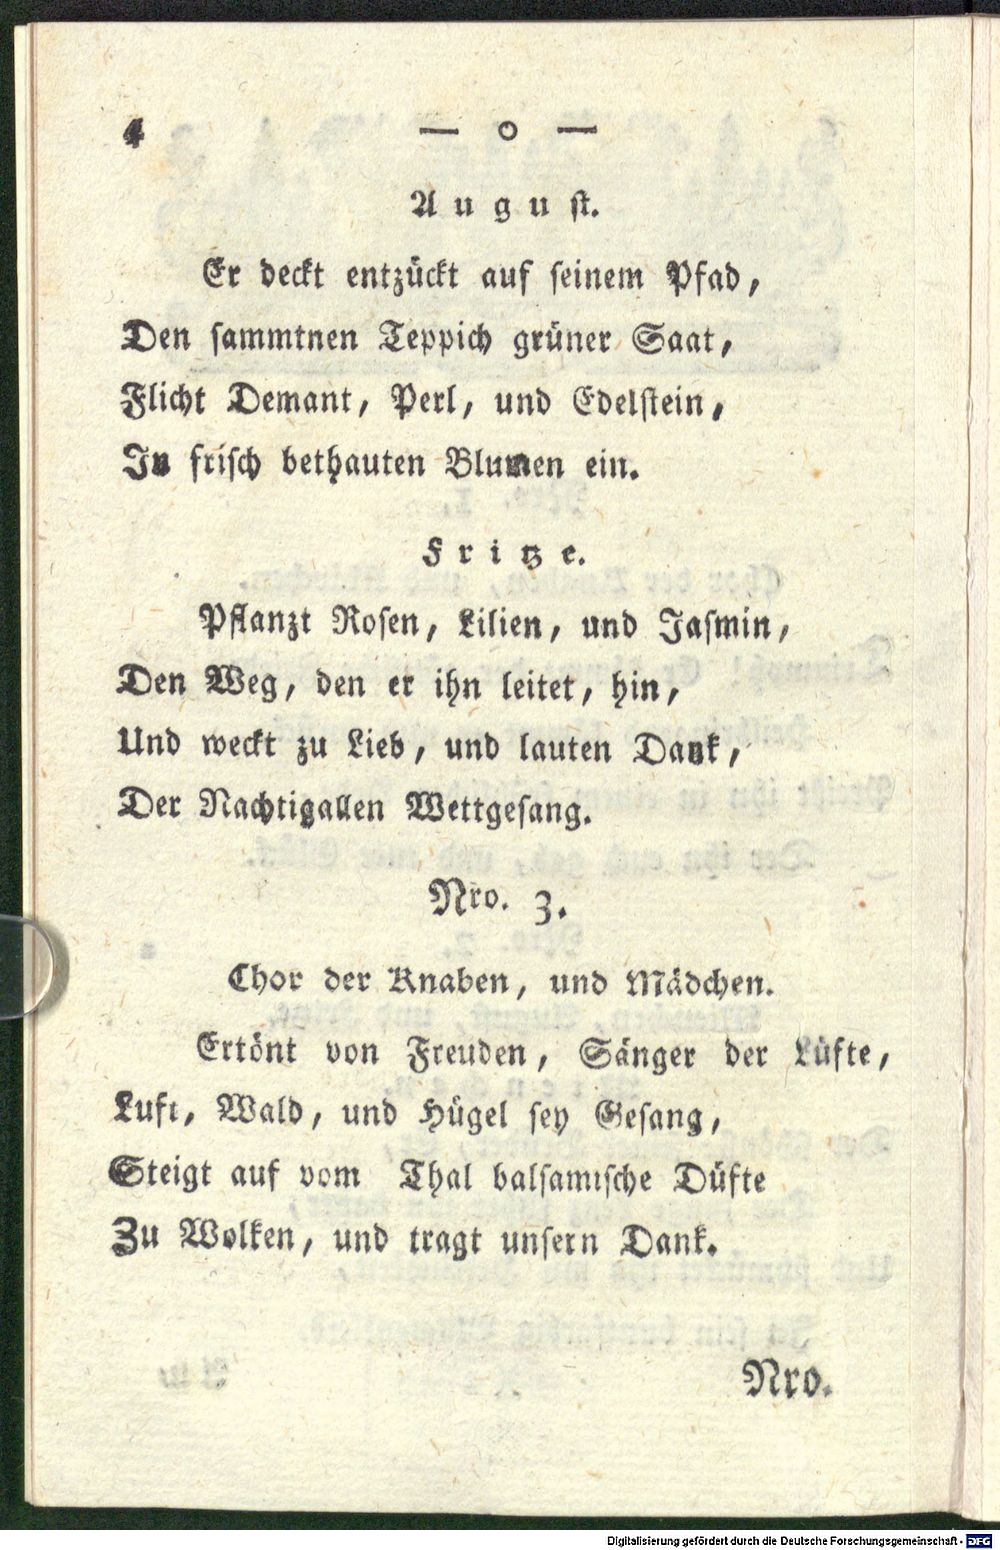 4 — o —
August.
Er deckt entzückt auf seinem Pfad,
Den sammtnen Teppich grüner Saat,
Flicht Demant, Perl, und Edelstein,
In frisch bethauten Blumen ein.
Fritze.
Pflanzt Rosen, Lilien, und Jasmin,
Den Weg, den er ihn leitet, hin,
Und weckt zu Lieb, und lauten Dank,
Der Nachtigallen Wettgesang.
Nro. 3.
Chor der Knaben, und Mädchen.
Ertönt von Freuden, Sänger der Lüfte,
Luft, Wald, und Hügel sey Gesang,
Steigt auf vom Thal balsamische Düfte
Zu Wolken, und tragt unsern Dank.
Nro.
Digitalisierung gefördert durch die Deutsche Forschungsgemeinschaft - DFG